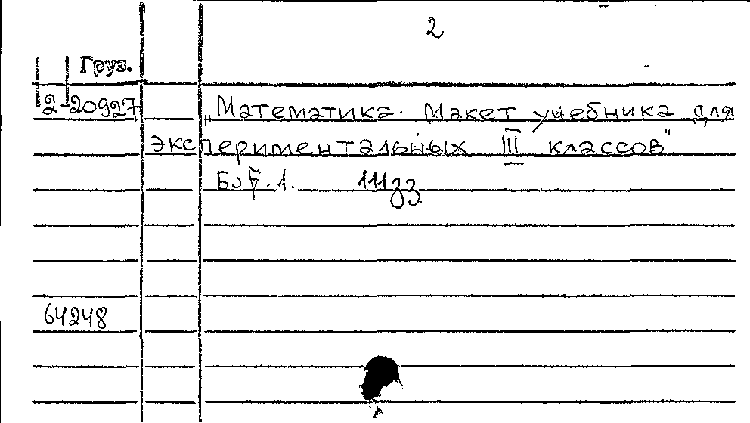 2
Груз.
2-20927 „Математика. Макет учебника для
экспериментальных III классов"
64248